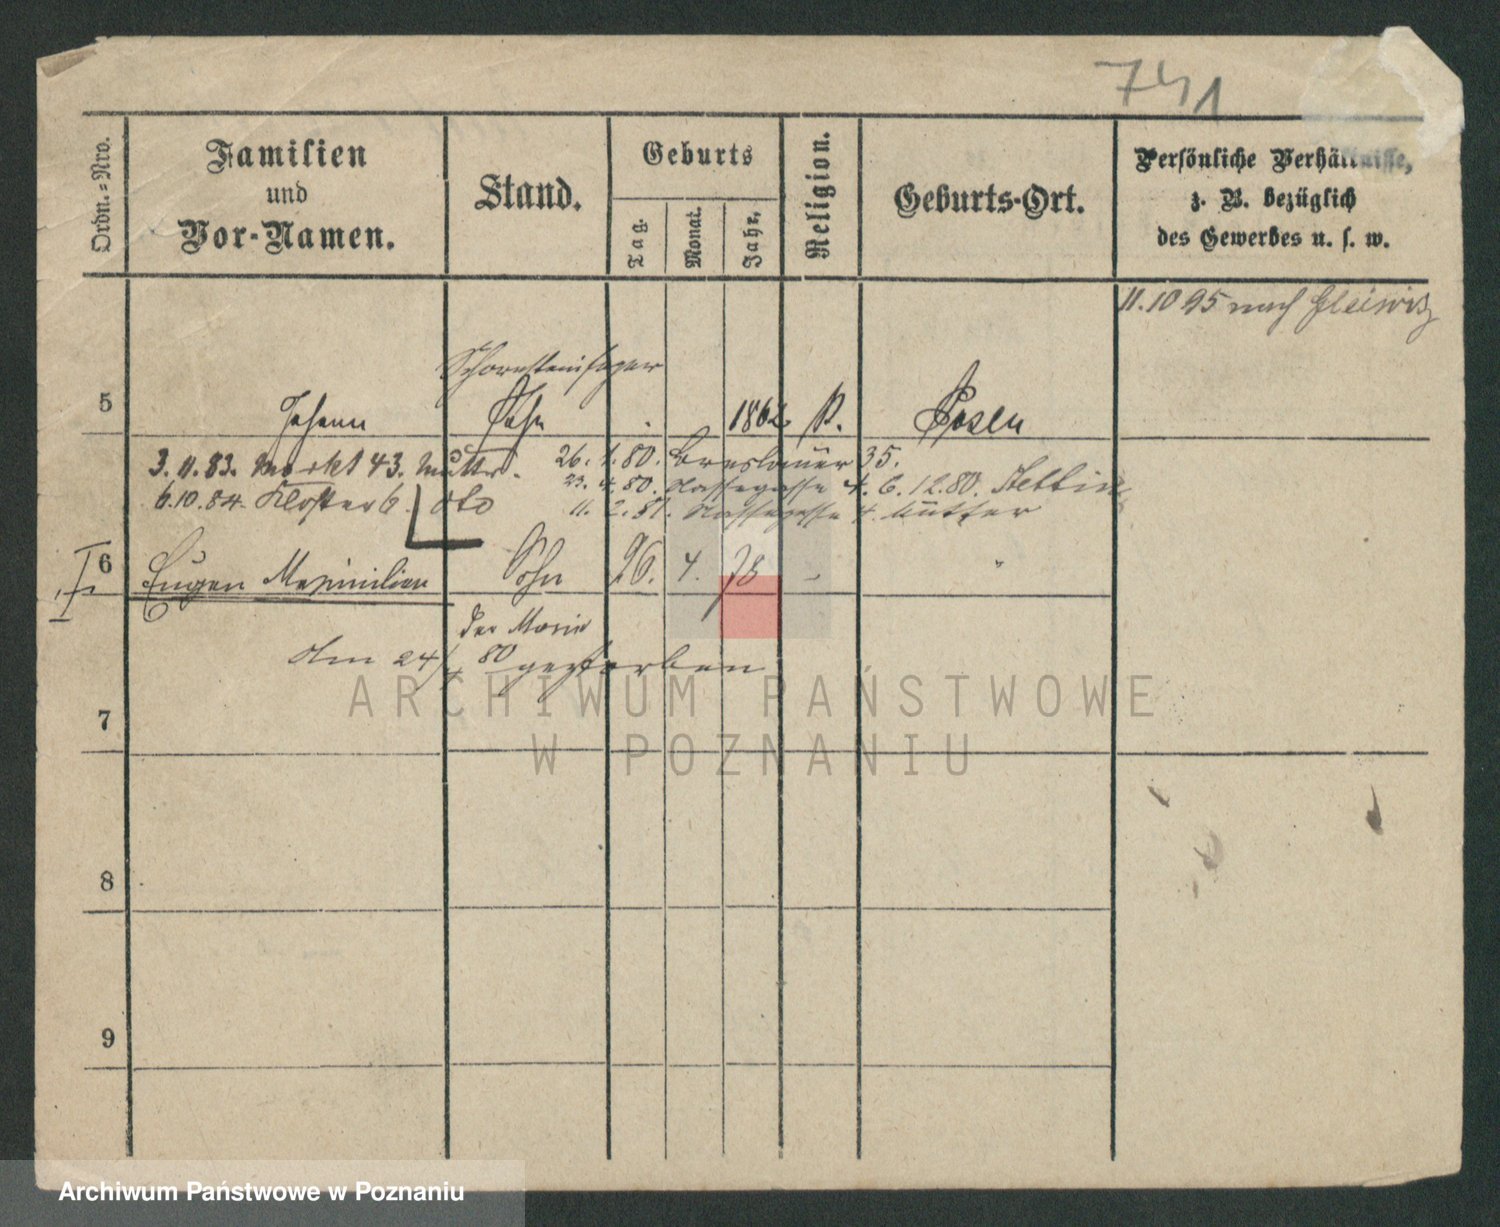 741
Ordn.=Nro.
Familien
und
Vor-Namen.
Stand.
Geburts
Tag.
Monat.
Jahr,
Religion.
Geburts-Ort.
Persönliche Verhältnisse,
z. B. bezüglich
des Gewerbes u. s. w.
11.10 95 nach Gleiwitz
Schornsteinfeger
5 Johann Sohn 1862 k. Posen
3.11.83. Markt 43. Mutter. 26.1.80. Breslauer 35.
23.4.80. Nassegasse 4. 6.12.80. Stettin
6.10.84. Kloster 6. dto 11.2.81. Nassegasse 4. Mutter
I. 6 Eugen Maximilian Sohn 26. 4. 78 - "
der Marie
Am 24/4 80 gestorben
7
ARCHIWUM PAŃSTWOWE
W POZNANIU
8
9
Archiwum Państwowe w Poznaniu